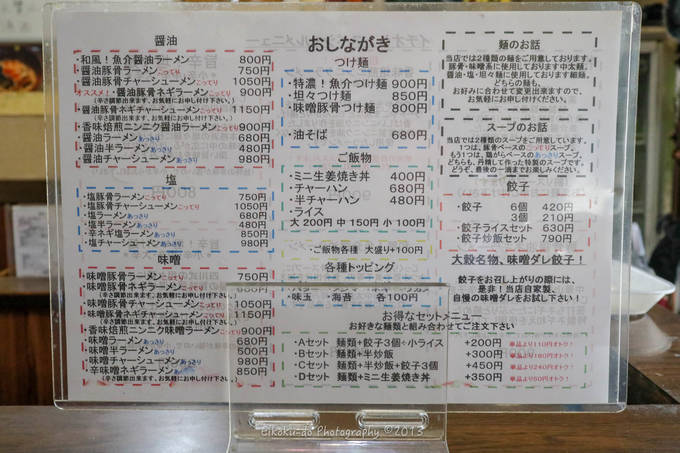 おしながき
醤油
・和風!魚介醤油ラーメン 800円
・醤油豚骨ラーメンこってり 750円
・醤油豚骨チャーシューメンこってり 1050円
オススメ!・醤油豚骨ネギラーメンこってり 900円
(辛さ調節出来ます、お気軽にお申し付け下さい。)
・醤油豚骨ネギチャーシューメンこってり 1150円
(辛さ調節出来ます、お気軽にお申し付け下さい。)
・香味焙煎ニンニク醤油ラーメンこってり 900円
・醤油ラーメンあっさり 680円
・醤油半ラーメンあっさり 480円
・醤油チャーシューメンあっさり 980円
塩
・塩豚骨ラーメンこってり 750円
・塩豚骨チャーシューメンこってり 1050円
・塩ラーメンあっさり 680円
・塩半ラーメンあっさり 480円
・辛ネギ塩ラーメンあっさり 850円
・塩チャーシューメンあっさり 980円
味噌
・味噌豚骨ラーメンこってり 750円
・味噌豚骨ネギラーメンこってり
(辛さ調節出来ます、お気軽にお申し付け下さい。)
・味噌豚骨チャーシューメンこってり 1050円
・味噌豚骨ネギチャーシューメンこってり 1150円
(辛さ調節出来ます、お気軽にお申し付け下さい。)
・香味焙煎ニンニク味噌ラーメンこってり 900円
・味噌ラーメンあっさり 680円
・味噌半ラーメンあっさり 500円
・味噌チャーシューメンあっさり 980円
・辛味噌ネギラーメンあっさり 850円
(辛さ調節出来ます、お気軽にお申し付け下さい。)
つけ麺
・特濃!魚介つけ麺 900円
・坦々つけ麺 850円
・味噌豚骨つけ麺 800円
・油そば 680円
ご飯物
・ミニ生姜焼き丼 400円
・チャーハン 680円
・半チャーハン 480円
・ライス
大 200円 中 150円 小 100円
・ご飯物各種 大盛り+100円
各種トッピング
・味玉 ・海苔 各100円
麺のお話
当店では2種類の麺をご用意しております。
豚骨・味噌系に使用しております中太麺。
醤油・塩・坦々麺に使用しております細麺。
どちらの麺も、
お好みに合わせて変更出来ますので、
お気軽にお申し付けください。
スープのお話
当店では2種類のスープをご用意しています。
1つは、豚骨ベースのこってりスープ。
もう1つは、鶏がらベースのあっさりスープ。
どちらも、丹精して作った特製のスープです。
どうぞ、最後の一滴までお楽しみください。
餃子
・餃子 6個 420円
3個 210円
・餃子ライスセット 630円
・餃子炒飯セット 790円
大穀名物、味噌ダレ餃子!
餃子をお召し上がりの際には、
是非!当店自家製、
自慢の味噌ダレをお試し下さい!
お得なセットメニュー
お好きな麺類と組み合わせてご注文下さい
・Aセット 麺類+餃子3個+小ライス +200円 単品より110円オトク!
・Bセット 麺類+半炒飯 +300円 単品より180円オトク!
・Cセット 麺類+半炒飯+餃子3個 +450円 単品より240円オトク!
・Dセット 麺類+ミニ生姜焼き丼 +350円 単品より50円オトク!
Eikoku-do Photography ©2013